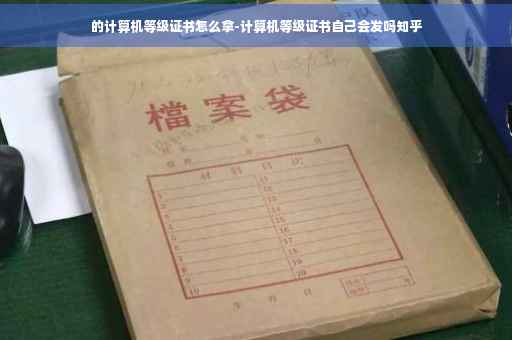 的计算机等级证书怎么拿-计算机等级证书自己会发吗知乎
檔案袋
材料目次
1 11
2 12
3 13
4 14
5 15
6 16
7 17
8 18
9 19
10 20
年 月 日